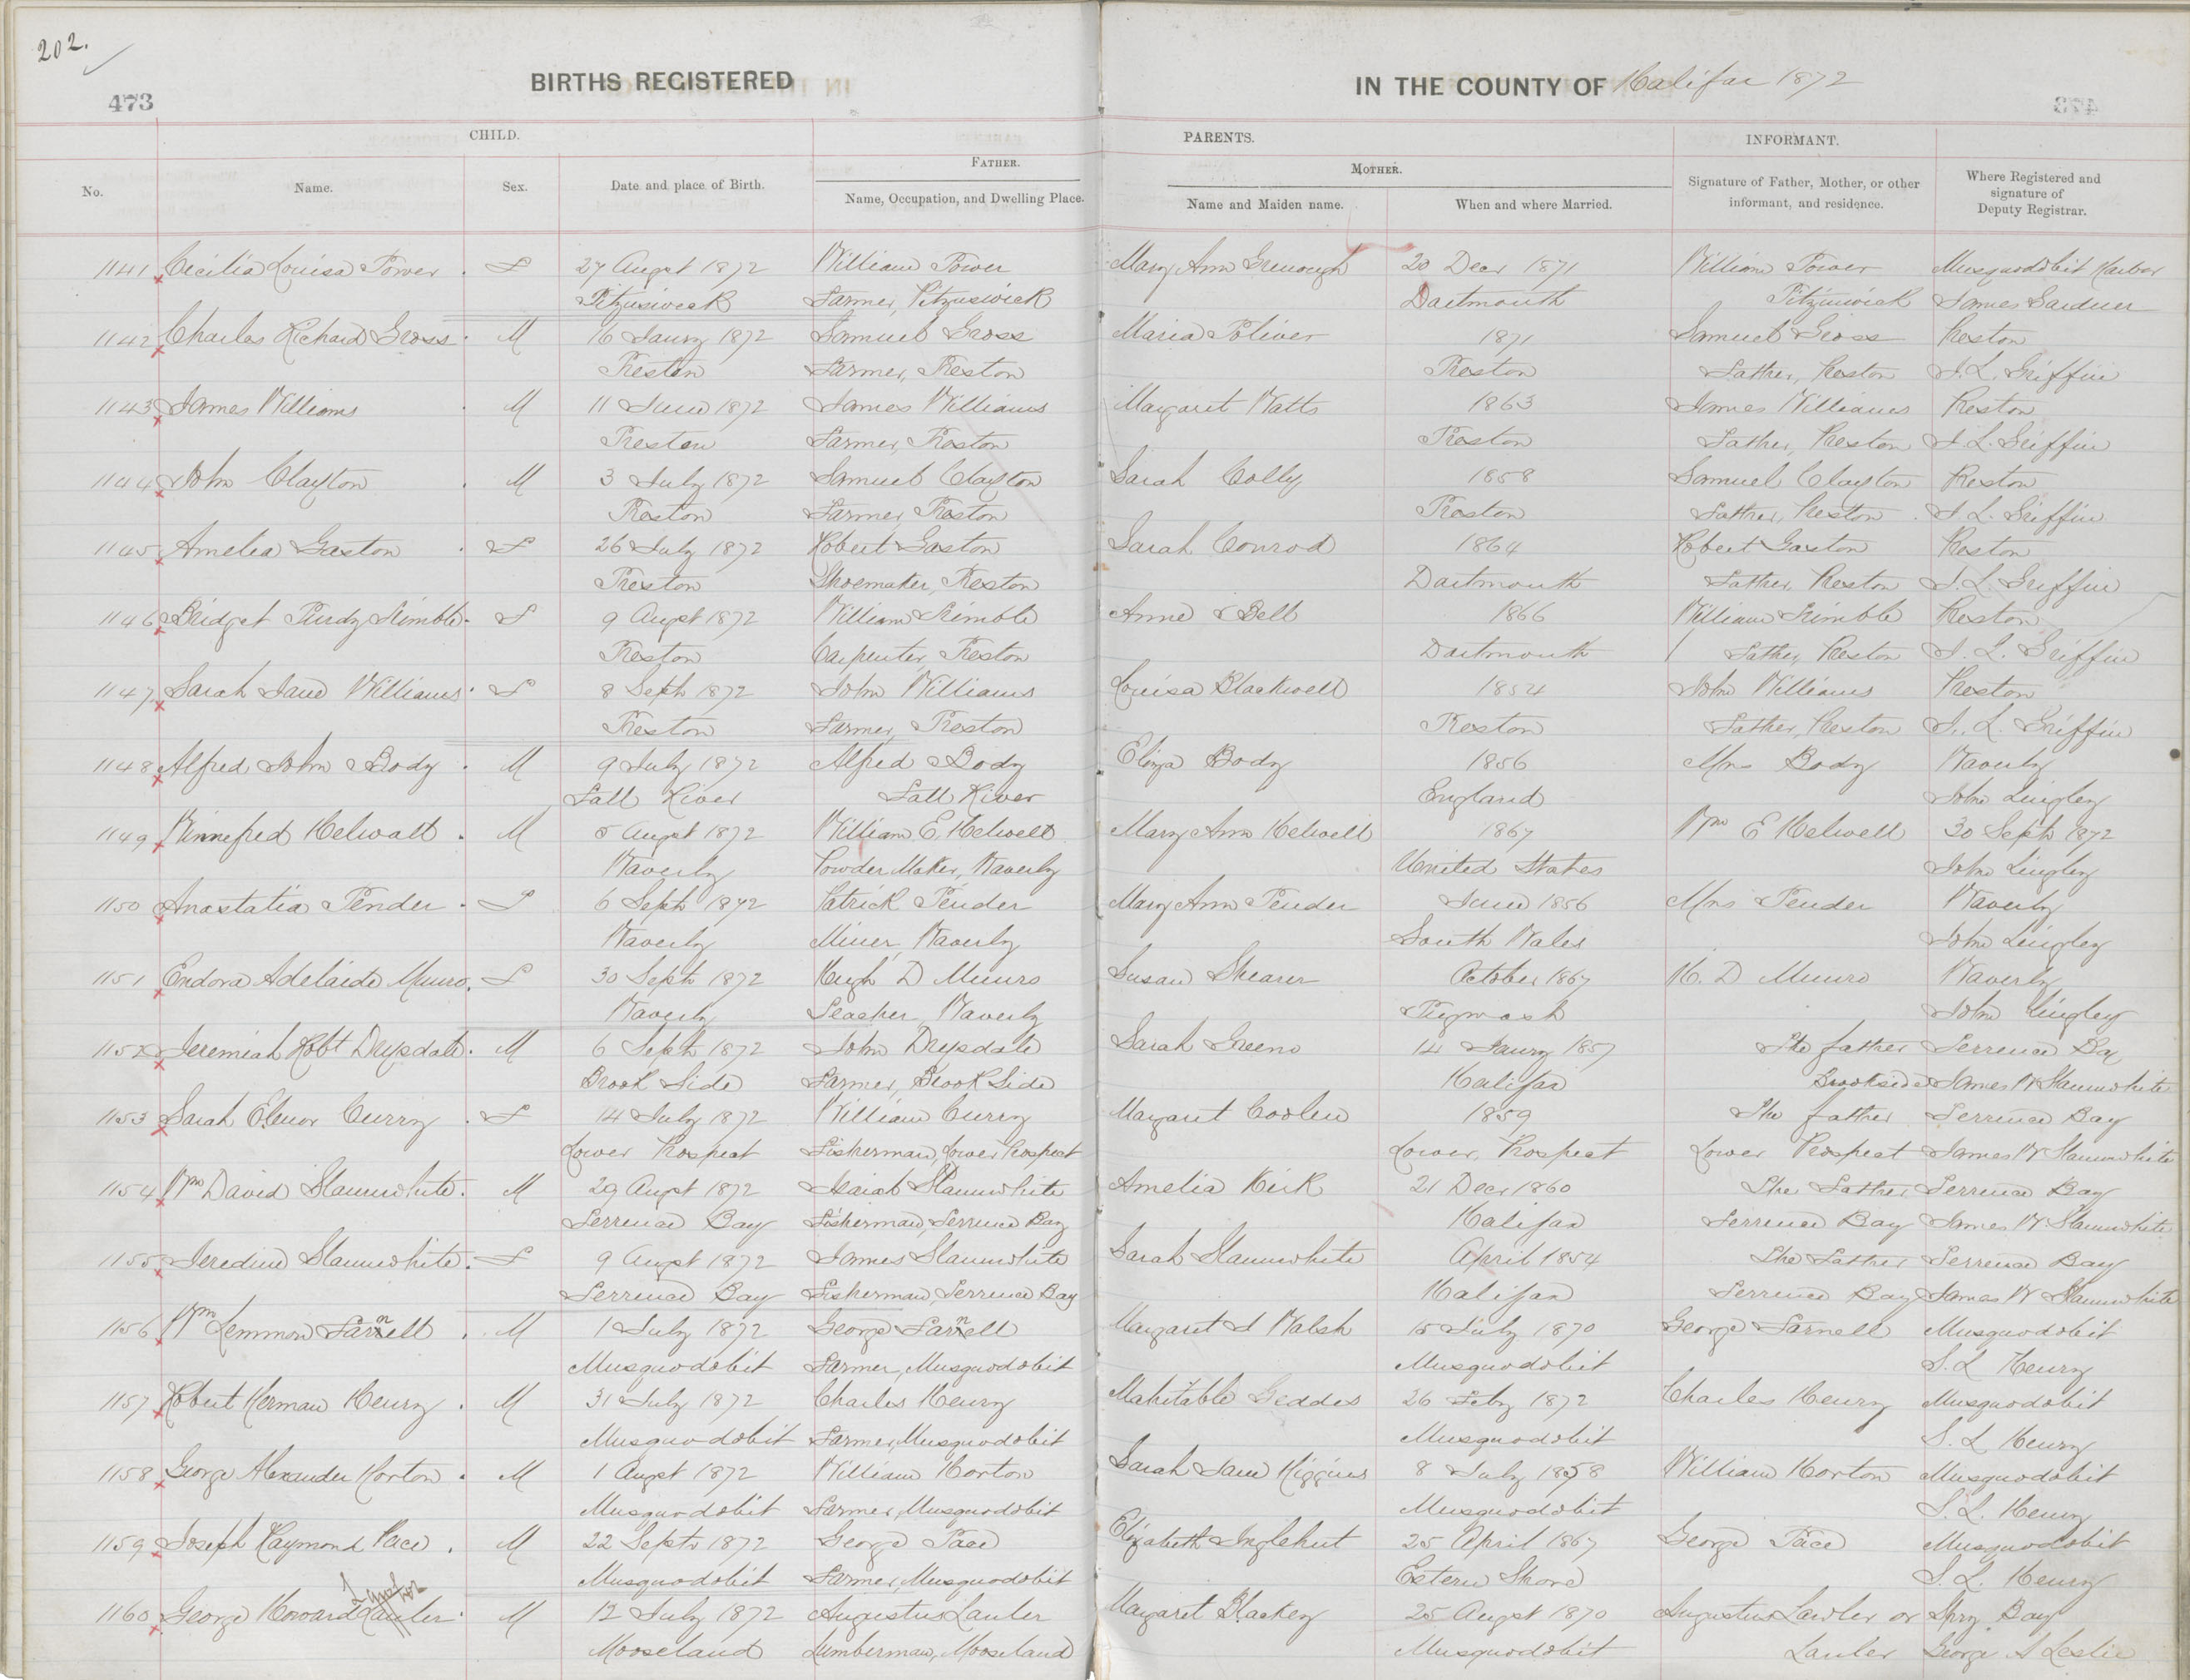 202.
473
BIRTHS REGISTERED
IN THE COUNTY OF Halifax 1872
CHILD.
PARENTS.
INFORMANT.
No.
Name.
Sex.
Date and place of Birth.
FATHER.
Name, Occupation, and Dwelling Place.
MOTHER.
Name and Maiden name.
When and where Married.
Signature of Father, Mother, or other
informant, and residence.
Where Registered and
signature of
Deputy Registrar.
1141 Cecilia Louisa Power F 27 Augst 1872 William Power Mary Ann Grenough 20 Decr 1871 William Power Musquodobit Harbor
Petzuiswick Farmer, Petzuiswick Dartmouth Petzuiswick James Gardner
1142 Charles Richard Gross M 16 Jaury 1872 Samuel Gross Maria Toliver 1871 Samuel Gross Preston
Preston Farmer, Preston Preston Father, Preston J. L. Griffin
1143 James Williams M 11 June 1872 James Williams Margaret Watts 1863 James Williams Preston
Preston Farmer, Preston Preston Father, Preston J. L. Griffin
1144 John Clayton M 3 July 1872 Samuel Clayton Sarah Colly 1858 Samuel Clayton Preston
Preston Farmer, Preston Preston Father, Preston J. L. Griffin
1145 Amelia Gaston F 26 July 1872 Robert Gaston Sarah Conrod 1864 Robert Gaston Preston
Preston Shoemaker, Preston Dartmouth Father, Preston J. L. Griffin
1146 Bridget Purdy Kimble F 9 Augst 1872 William Kimble Anne Bell 1866 William Kimble Preston
Preston Carpenter, Preston Dartmouth Father, Preston J. L. Griffin
1147 Sarah Jane Williams F 8 Septr 1872 John Williams Louisa Blackwell 1854 John Williams Preston
Preston Farmer, Preston Preston Father, Preston J. L. Griffin
1148 Alfred John Body M 9 July 1872 Alfred Body Eliza Body 1856 Mrs Body Waverly
Fall River Fall River England John Lingley
1149 Winnefred Helwall M 5 Augst 1872 William E. Helwell Mary Ann Helwell 1867 Wm E Helwell 30 Septr 1872
Waverly Powder Maker, Waverly United States John Lingley
1150 Anastatia Pender F 6 Septr 1872 Patrick Pender Mary Ann Pender June 1856 Mrs Pender Waverly
Waverly Miner, Waverly South Wales John Lingley
1151 Endora Adelaide Munro F 30 Septr 1872 Hugh D Munro Susan Shearer October 1867 H. D Munro Waverly
Waverly Teacher, Waverly Pugwash John Lingley
1152 Jeremiah Robt Drysdale M 6 Septr 1872 John Drysdale Sarah Greeno 14 Jaury 1857 The father Terrence Bay
Brook Side Farmer, Brook Side Halifax Brookside James W Slaunwhite
1153 Sarah Elenor Curry F 14 July 1872 William Curry Margaret Coolen 1859 The father Terrence Bay
Lower Prospect Fisherman, Lower Prospect Lower Prospect Lower Prospect James W Slaunwhite
1154 Wm David Slaunwhite M 29 Augt 1872 Isaiah Slaunwhite Amelia Kirk 21 Decr 1860 The Father Terrence Bay
Terrence Bay Fisherman, Terrence Bay Halifax Terrence Bay James W. Slaunwhite
1155 Jeredine Slaunwhite F 9 Augst 1872 James Slaunwhite Sarah Slaunwhite April 1854 The Father Terrence Bay
Terrence Bay Fisherman, Terrence Bay Halifax Terrence Bay James W Slaunwhite
1156 Wm Lemmon Farnell M 1 July 1872 George Farnell Margaret J Walsh 15 July 1870 George Farnell Musquodobit
Musquodobit Farmer, Musquodobit Musquodobit S. L Henry
1157 Robert Herman Henry M 31 July 1872 Charles Henry Mahitable Geddes 26 Feby 1872 Charles Henry Musquodobit
Musquodobit Farmer, Musquodobit Musquodobit S. L Henry
1158 George Alexander Horton M 1 Augst 1872 William Horton Sarah Jane Higgins 8 July 1858 William Horton Musquodobit
Musquodobit Farmer, Musquodobit Musquodobit S. L. Henry
1159 Joseph Raymond Pace M 22 Septr 1872 George Pace Elizabeth Inglehut 25 April 1867 George Pace Musquodobit
Musquodobit Farmer, Musquodobit Estern Shore S. L. Henry
1160 George Howard Lauler M 12 July 1872 Augustus Lauler Margaret Blackey 25 Augst 1870 Augustus Lawler or Spry Bay
Mooseland Lumberman, Mooseland Musquodobit Lauler George A Leslie